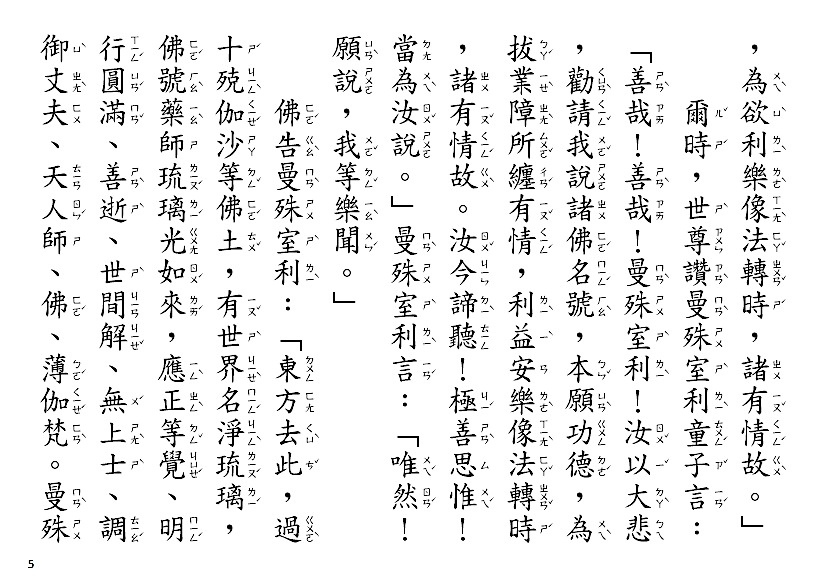 ，為欲利樂像法轉時，諸有情故。」
爾時，世尊讚曼殊室利童子言：
「善哉！善哉！曼殊室利！汝以大悲
，勸請我說諸佛名號，本願功德，為
拔業障所纏有情，利益安樂像法轉時
，諸有情故。汝今諦聽！極善思惟！
當為汝說。」曼殊室利言：「唯然！
願說，我等樂聞。」
佛告曼殊室利：「東方去此，過
十殑伽沙等佛土，有世界名淨琉璃，
佛號藥師琉璃光如來，應正等覺、明
行圓滿、善逝、世間解、無上士、調
御丈夫、天人師、佛、薄伽梵。曼殊
5